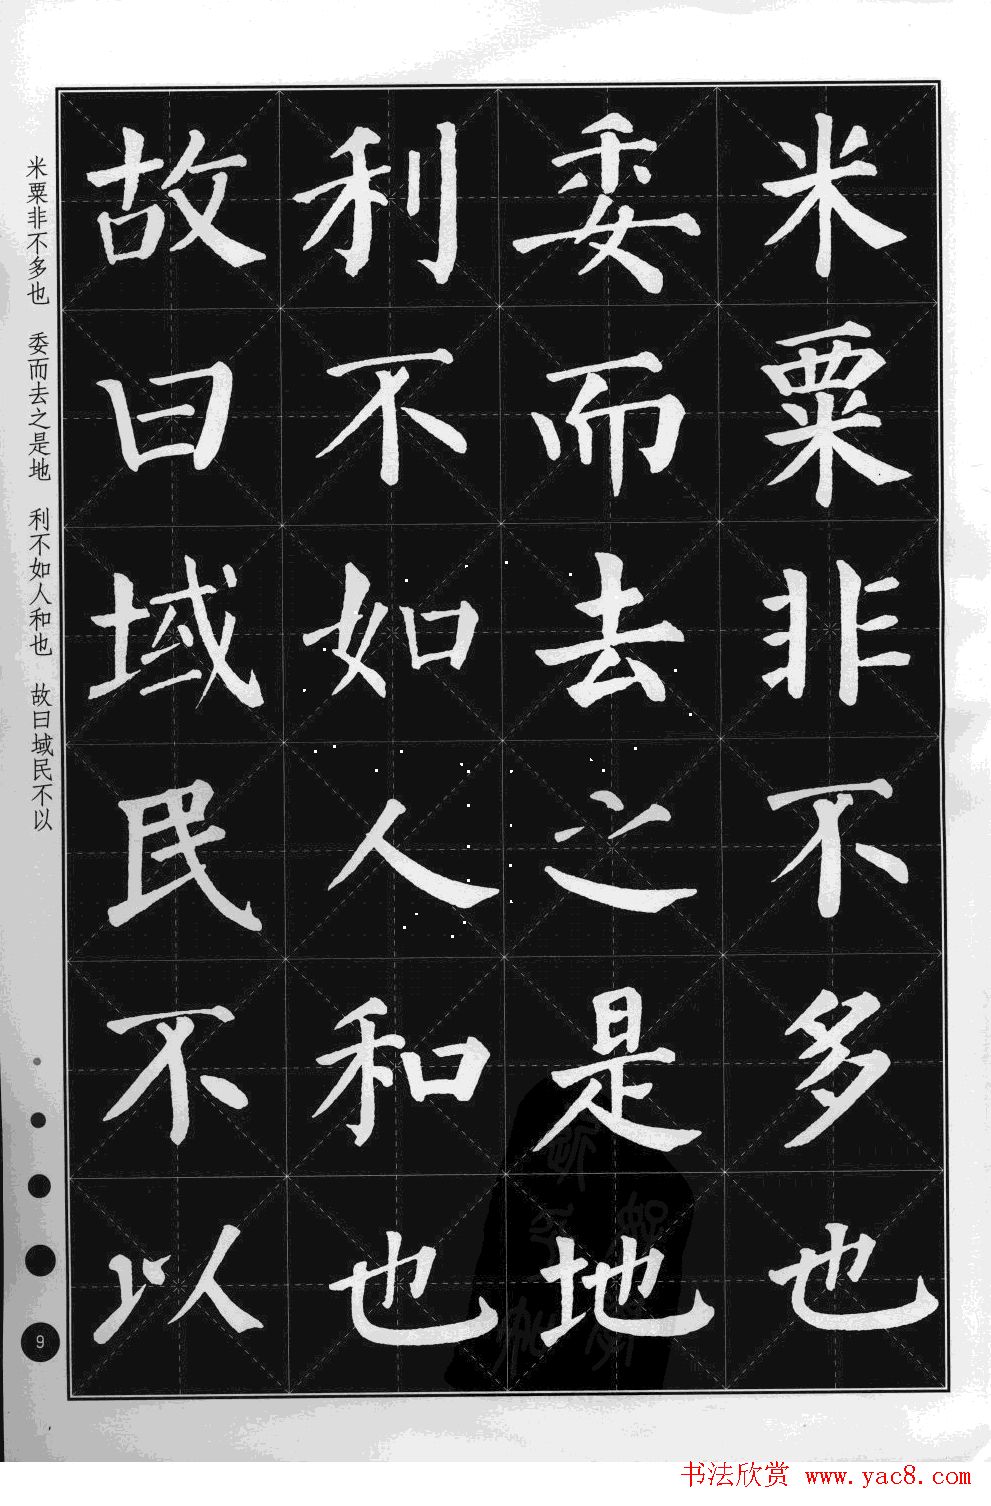 米粟非不多也
委而去之是地
利不如人和也
故曰域民不以
米粟非不多也 委而去之是地 利不如人和也 故曰域民不以
9
书法欣赏 www.yac8.com